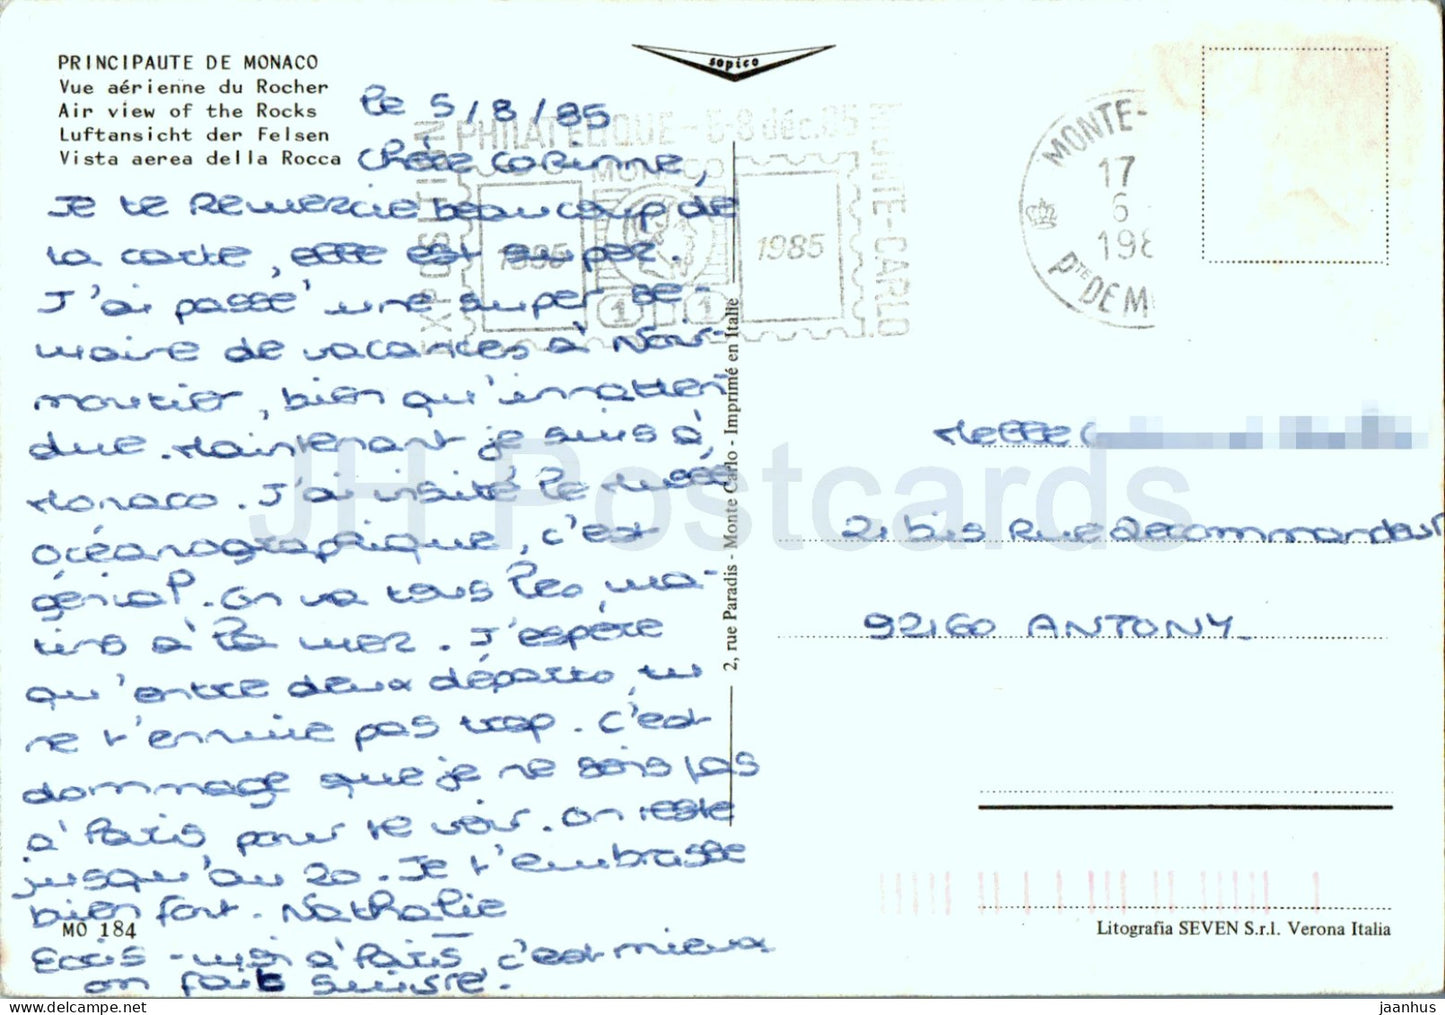 PRINCIPAUTE DE MONACO
Vue aérienne du Rocher
Air view of the Rocks
Luftansicht der Felsen
Vista aerea della Rocca
sopico
le 5/8/85
Chère Corinne,
Je te remercie beaucoup de
la carte, elle est super.
J'ai passé une super se-
maine de vacances à Noir-
moutier, bien qu'innatten
due. Maintenant je suis à
Monaco. J'ai visité le musée
océanographique, c'est
génial. On va tous les ma-
tins à la mer. J'espère
qu'entre deux départs, tu
ne t'ennuie pas trop. C'est
dommage que je ne sois pas
à Paris pour te voir. On reste
jusqu'au 20. Je t'embrasse
bien fort. Nathalie
Ecris-moi à Paris, c'est mieux
on fait suivre.
MO 184
EXPOSITION
PHILATELIQUE - 6-8 déc. 85
MONTE-CARLO
MONACO
1985
1985
1
1
MONTE-
17
6
198
Pté DE M
2, rue Paradis - Monte Carlo - Imprimé en Italie
Melle
21 bis Rue
92160 ANTONY
Litografia SEVEN S.r.l. Verona Italia
JH Postcards
jaanhus | delcampe.net